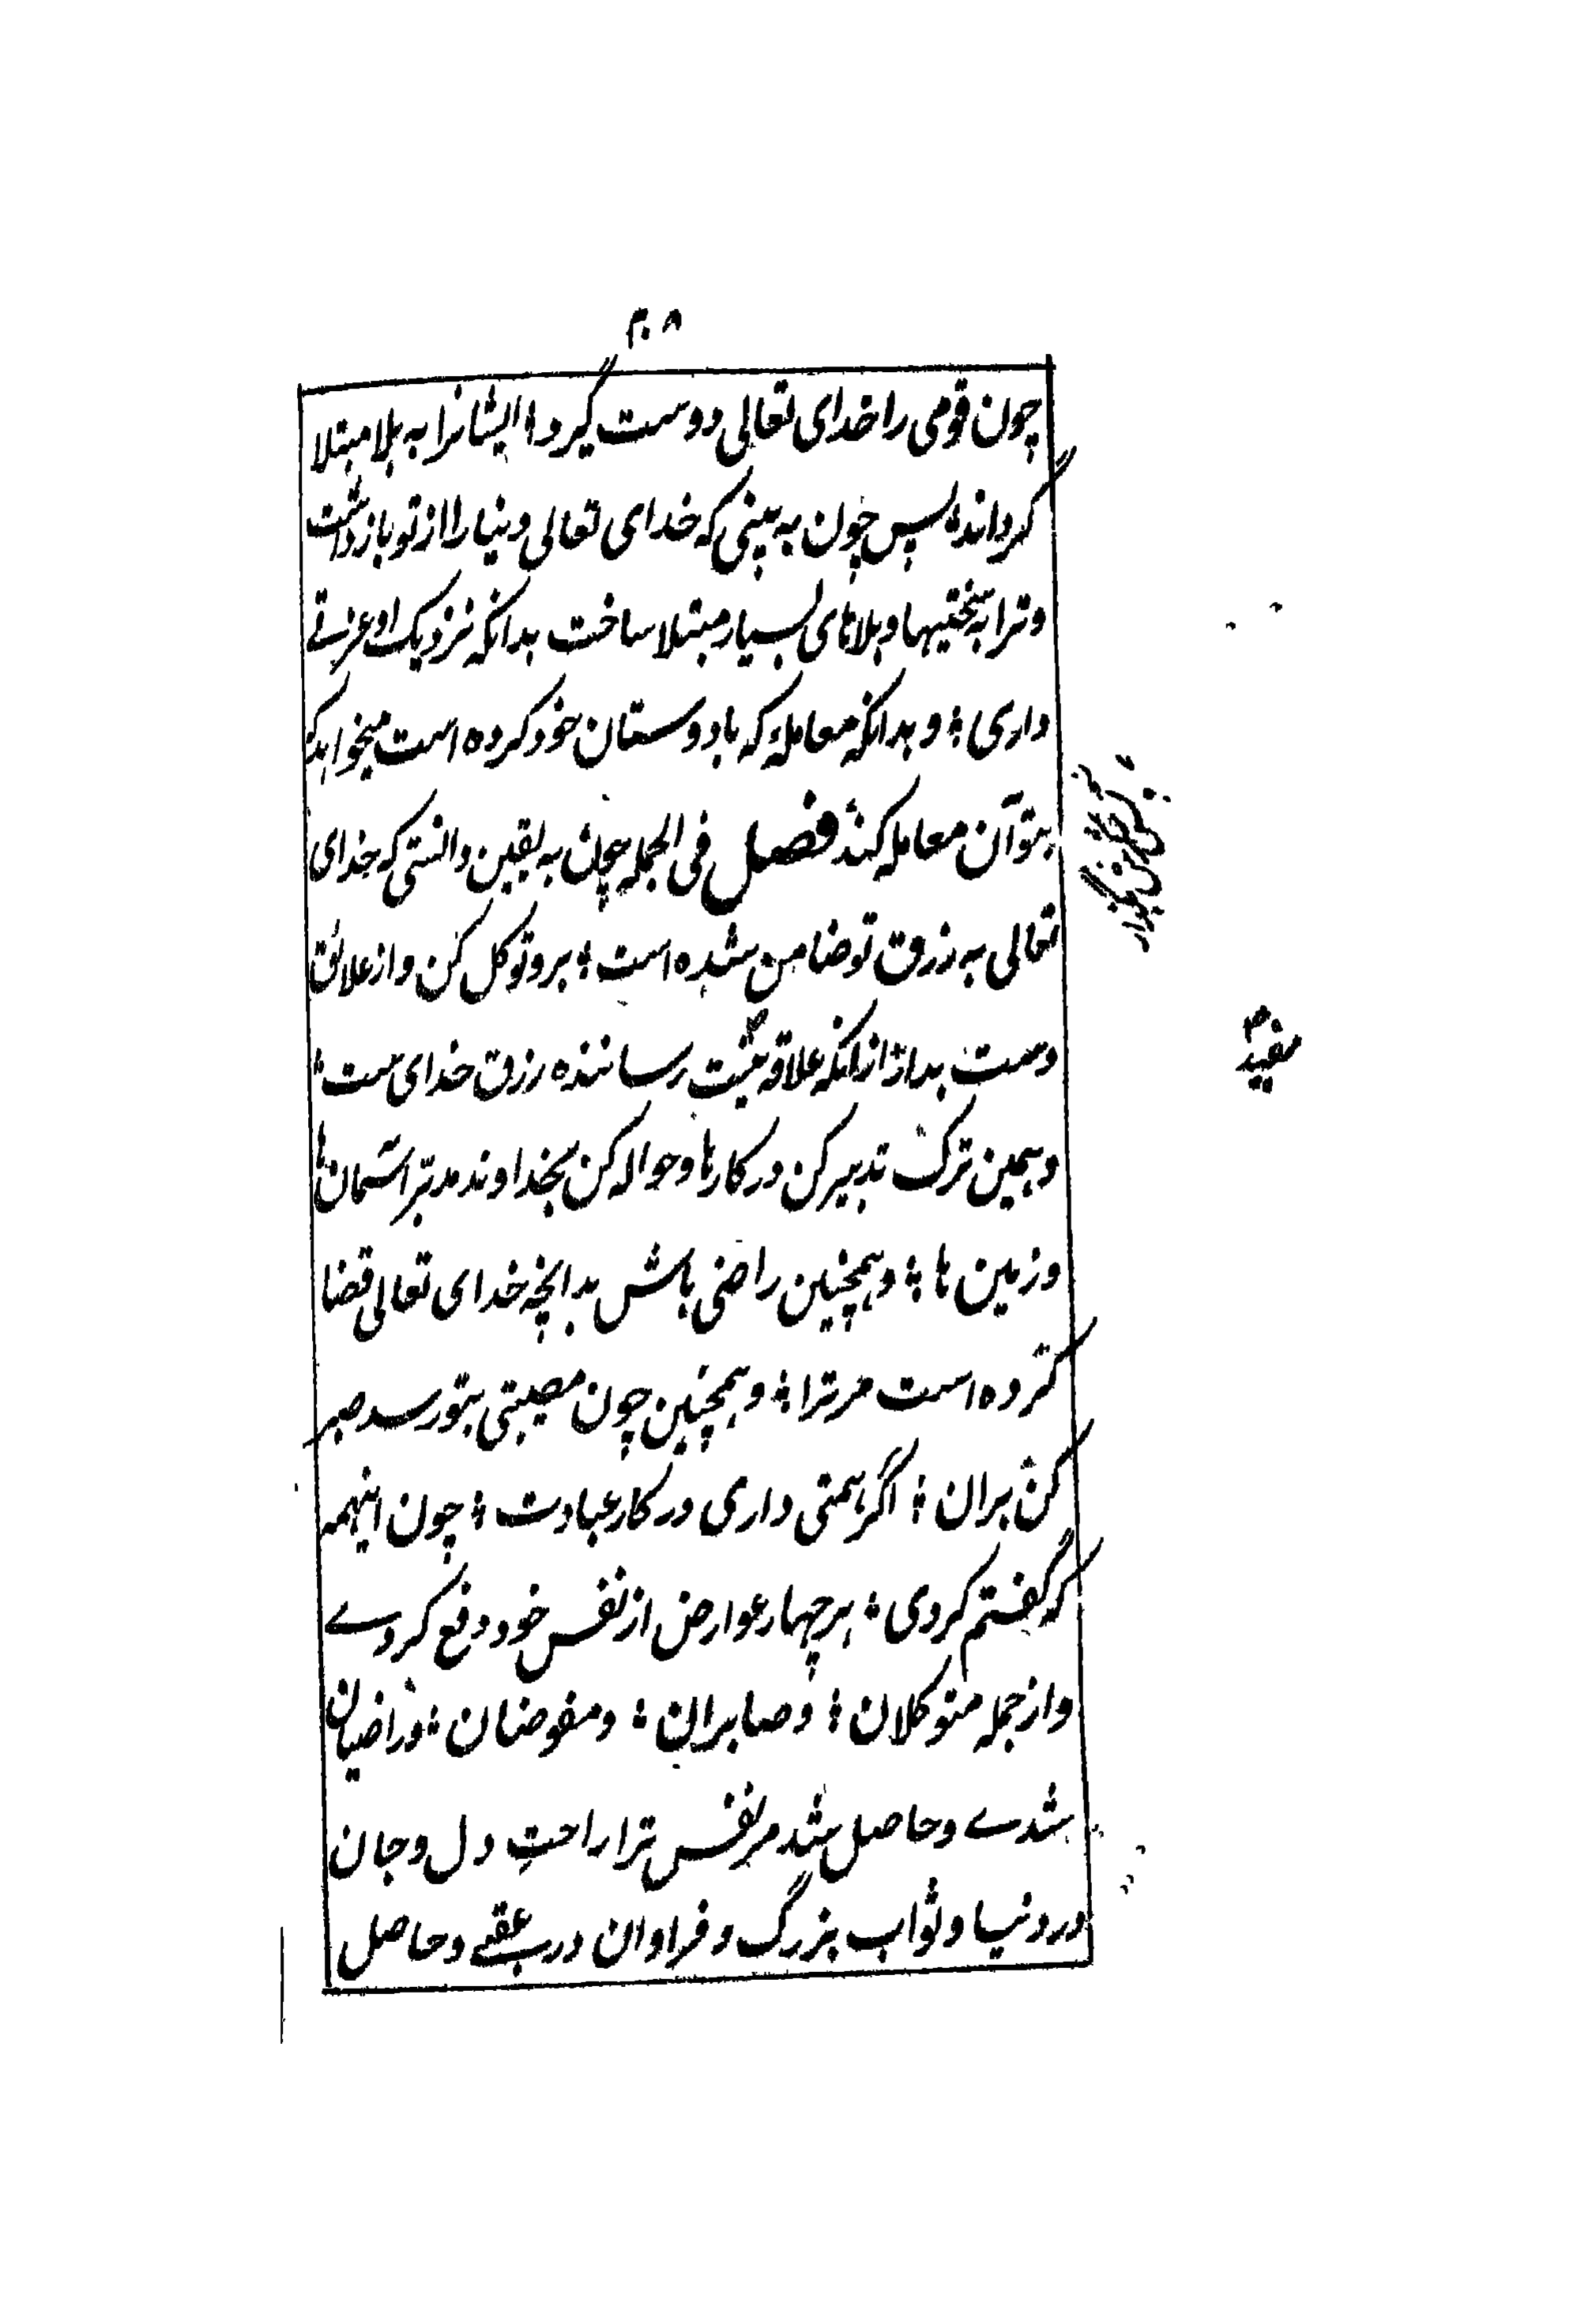 ۲۰۸
چون قومی را خدای تعالی دوست گیرد؛ ایشانرا به بلا مبتلا
گرداند؛ پس چون به بینی که خدای تعالی دنیا را از تو بازداشت
و ترا به سختیها و بلاهای بسیار مبتلا ساخت بدانکه نزدیک او عزتے
داری؛ و بدانکه معاملهٔ که با دوستان خود کرده است میخواهد که
بتو آن معامله کند؛ فصل فی الجمله چون به یقین دانستی که خدای
تعالی به رزق تو ضامن شده است؛ برو توکل کن و از علائق
دست بدار؛ ازانکه علاقه رساننده رزق خدای ست؛
و همین ترک تدبیر کن در کارها و حواله کن بخداوند مدبّر آسمان ها
و زمین ها؛ و همچنین راضی باش بدانچه خدای تعالی قضا
کرده است مر ترا؛ و همچنین چون مصیبتی بتو رسد صبر
کن بران؛ اگر همتی داری در کار عبادت؛ چون اینهمه
که گفتم کردی؛ هر چهار عوارض از نفس خود دفع کردے
و از جمله متوکلان؛ و صابران؛ و مفوضان؛ و راضیان
شدے و حاصل شد مر نفس ترا راحتِ دل و جان
در دنیا و ثواب بزرگ و فراوان در عقبے و حاصل
مفید